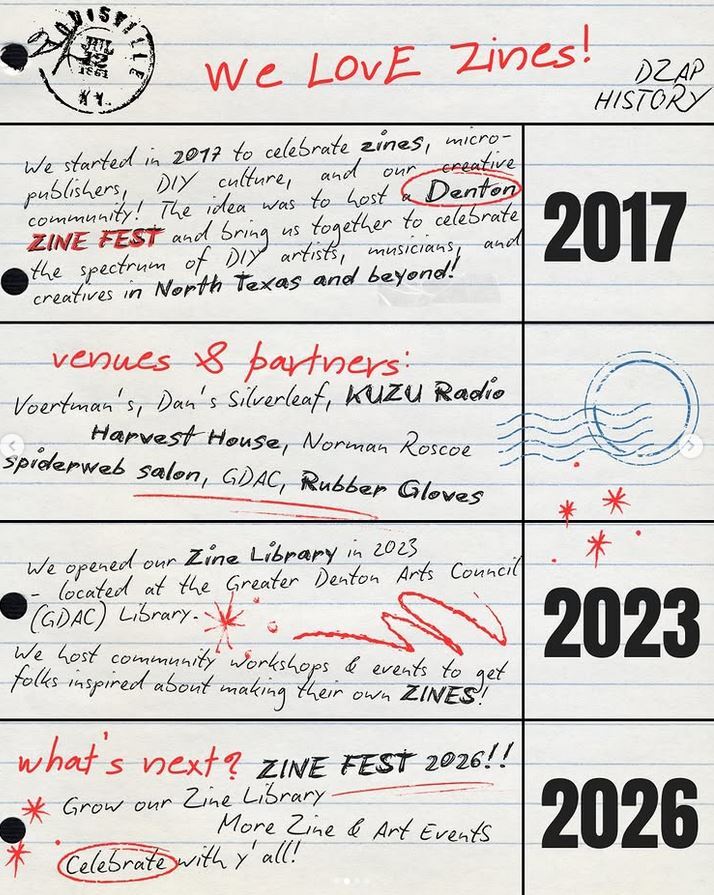 LOUISVILLE
JUL
12
1861
KY.
We LovE Zines!
DZAP
HISTORY
We started in 2017 to celebrate zines, micro-
publishers, DIY culture, and our creative
community! The idea was to host a Denton
ZINE FEST and bring us together to celebrate
the spectrum of DIY artists, musicians, and
creatives in North Texas and beyond!
2017
venues & partners:
Voertman's, Dan's Silverleaf, KUZU Radio
Harvest House, Norman Roscoe
spiderweb salon, GDAC, Rubber Gloves
We opened our Zine Library in 2023
- located at the Greater Denton Arts Council
(GDAC) Library.
We host community workshops & events to get
folks inspired about making their own ZINES!
2023
what's next? ZINE FEST 2026!!
Grow our Zine Library
More Zine & Art Events
Celebrate with y'all!
2026